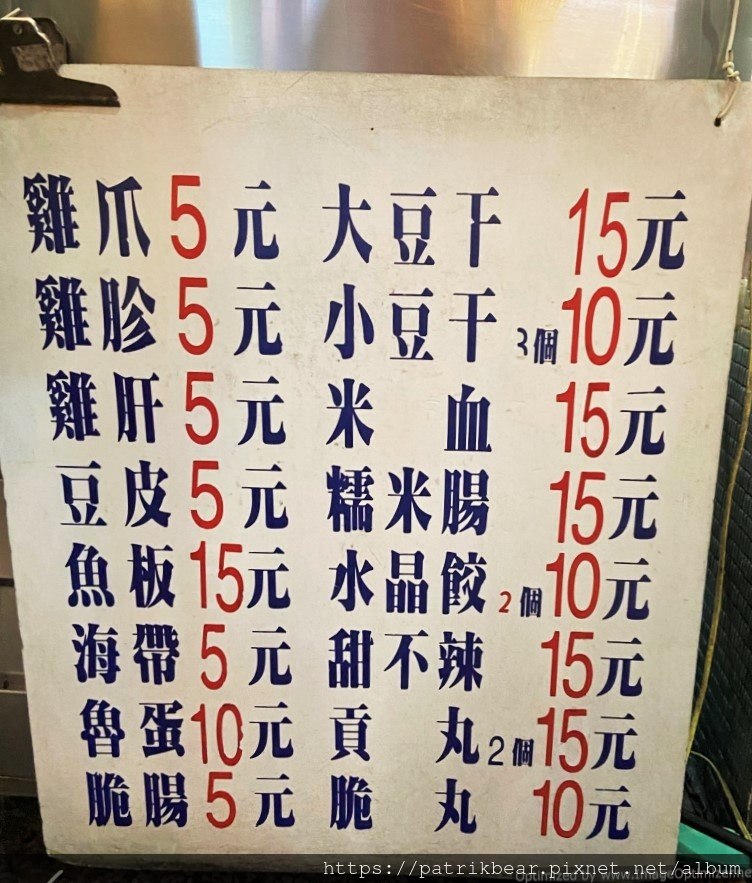 雞爪5元 大豆干 15元
雞胗5元 小豆干 3個10元
雞肝5元 米血 15元
豆皮5元 糯米腸 15元
魚板15元 水晶餃 2個10元
海帶5元 甜不辣 15元
魯蛋10元 貢丸2個15元
脆腸5元 脆丸 10元
https://patrikbear.pixnet.net/album
Optimized by www.ImageOptimizer.net